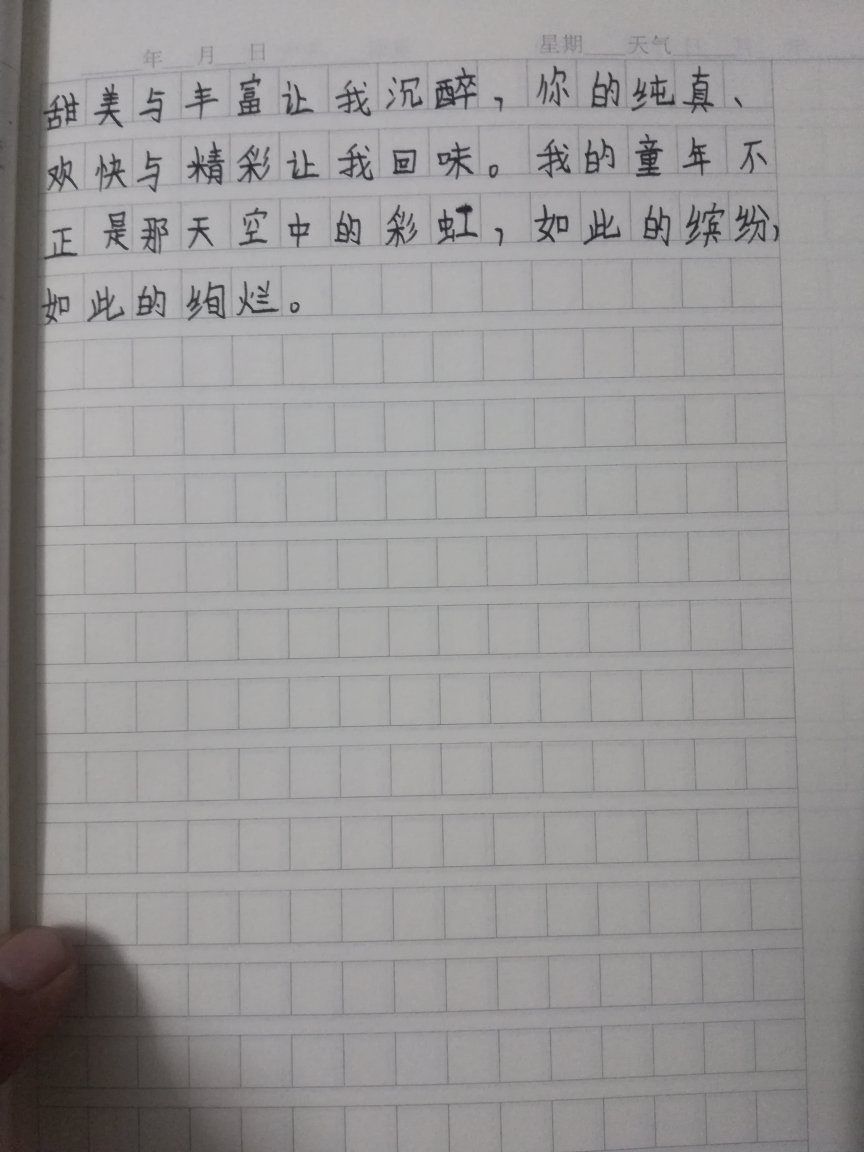 年 月 日 星期 天气
甜美与丰富让我沉醉，你的纯真、
欢快与精彩让我回味。我的童年不
正是那天空中的彩虹，如此的缤纷，
如此的绚烂。